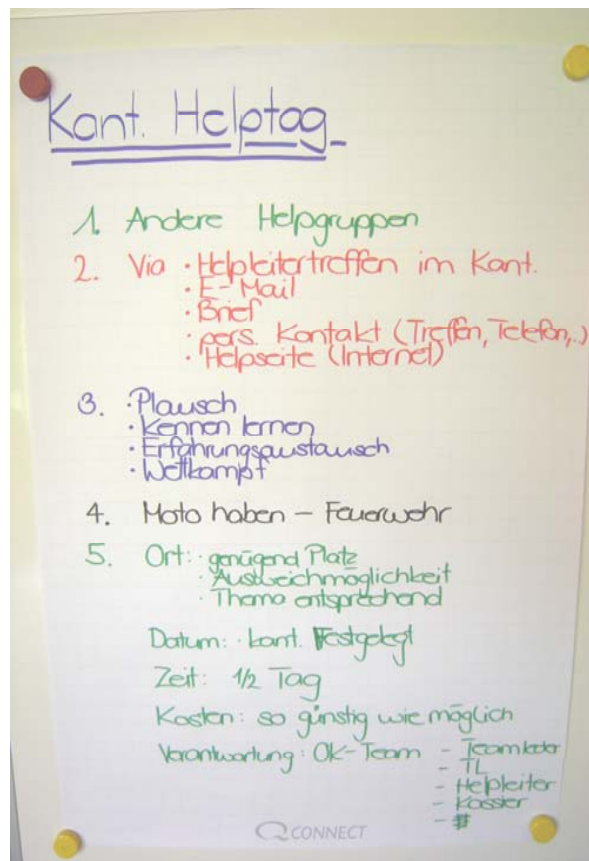 Kant. Helptag
1. Andere Helpgruppen
2. Via · Helpleitertreffen im Kant.
· E-Mail
· Brief
· pers. Kontakt (Treffen, Telefon,.)
· Helpseite (Internet)
3. · Plausch
· Kennen lernen
· Erfahrungsaustausch
· Wettkampf
4. Moto haben – Feuerwehr
5. Ort: · genügend Platz
· Ausweichmöglichkeit
· Thema entsprechend
Datum: · kant. Festgelegt
Zeit: 1/2 Tag
Kosten: so günstig wie möglich
Verantwortung: OK-Team - Teamleiter
- TL
- Helpleiter
- Kassier
- #
Q CONNECT